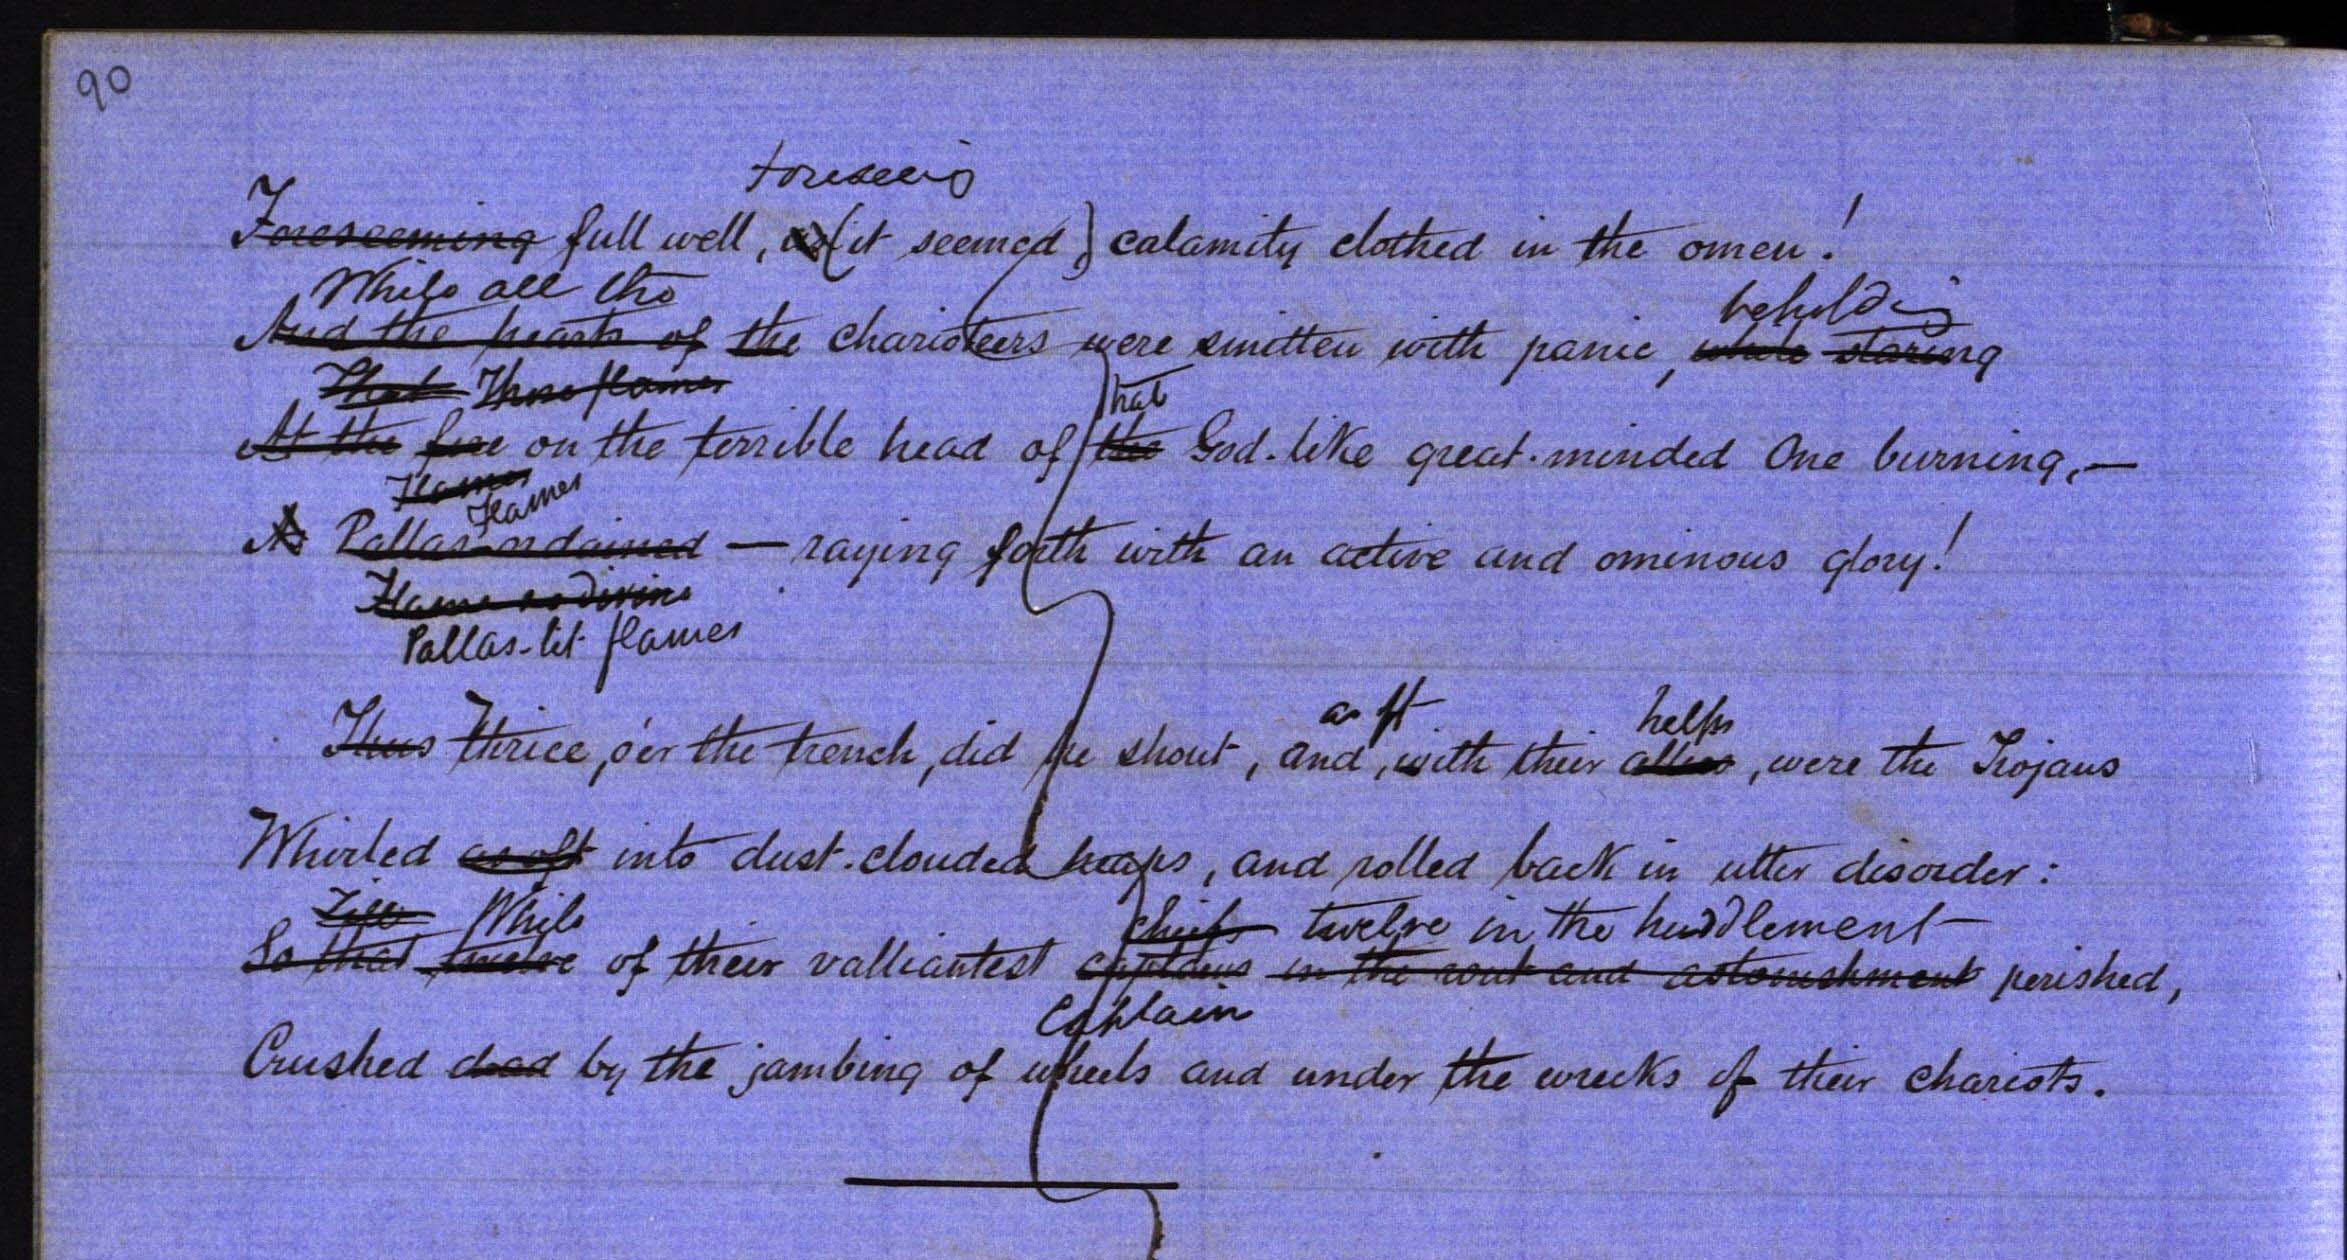 90
foreseeing
Foreseeming full well, as (it seemed) calamity clothed in the omen!
While all the
beholding
And the hearts of the charioteers were smitten with panic, while staring
That Those flames
that
At the fire on the terrible head of the God-like great-minded One burning,—
Flames
Flames
As Pallas-ordained — raying forth with an active and ominous glory!
Pallas-lit flames
as oft
helps
Thus Thrice, o'er the trench, did he shout, and, with their allies, were the Trojans
Whirled as oft into dust-clouded heaps, and rolled back in utter disorder:
Till While
chiefs twelve in the huddlement
So that twelve of their valliantest captains in the rout and astonishment perished,
Captain
Crushed dead by the jambing of wheels and under the wrecks of their chariots.